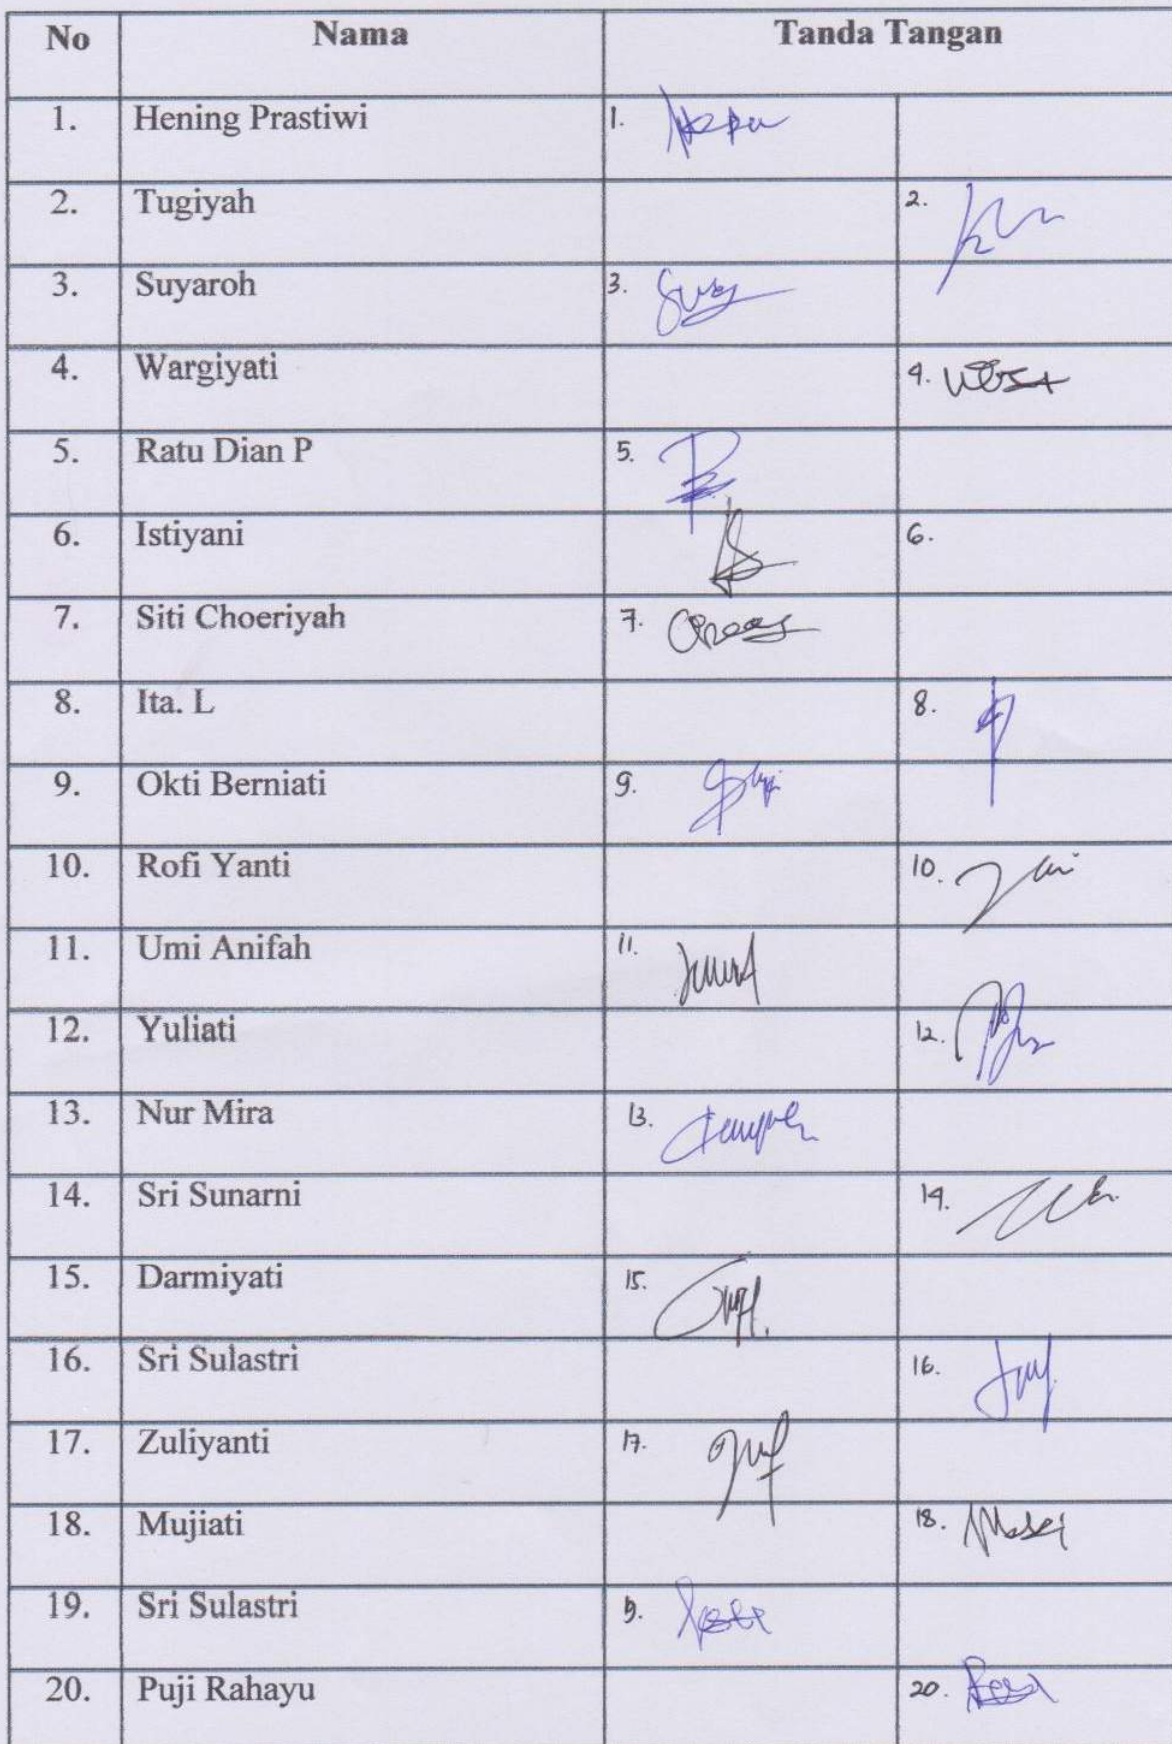 No Nama Tanda Tangan
1. Hening Prastiwi 1.
2. Tugiyah 2.
3. Suyaroh 3.
4. Wargiyati 4.
5. Ratu Dian P 5.
6. Istiyani 6.
7. Siti Choeriyah 7.
8. Ita. L 8.
9. Okti Berniati 9.
10. Rofi Yanti 10.
11. Umi Anifah 11.
12. Yuliati 12.
13. Nur Mira 13.
14. Sri Sunarni 14.
15. Darmiyati 15.
16. Sri Sulastri 16.
17. Zuliyanti 17.
18. Mujiati 18.
19. Sri Sulastri 19.
20. Puji Rahayu 20.